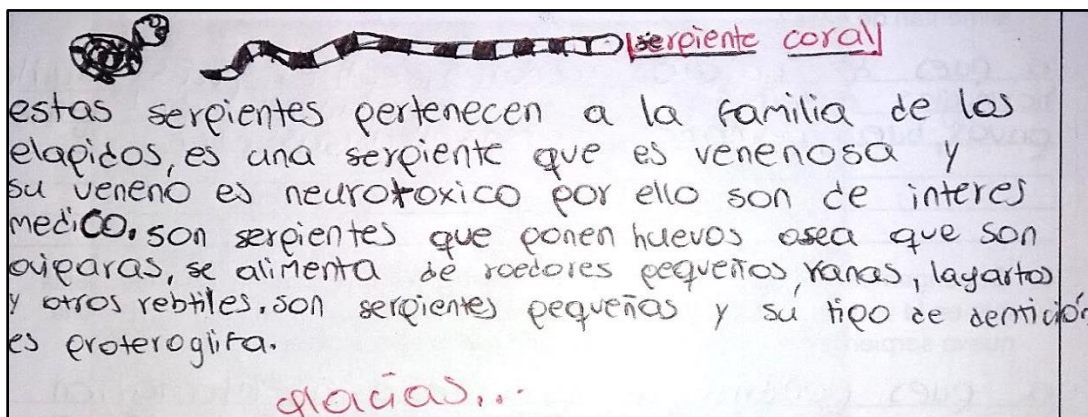 serpiente coral
estas serpientes pertenecen a la familia de los
elapidos, es una serpiente que es venenosa y
su veneno es neurotoxico por ello son de interes
medico. son serpientes que ponen huevos osea que son
oviparas, se alimenta de roedores pequeños, ranas, lagartos
y otros rebtiles. son serpientes pequeñas y su tipo de dentición
es proteroglifa.
gracias...